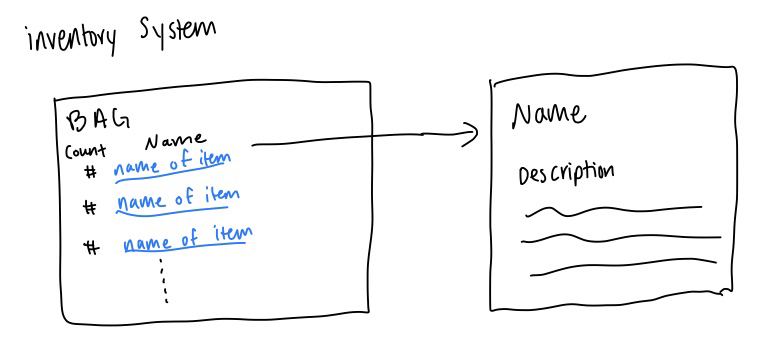 inventory System
BAG
Count Name
# name of item
# name of item
# name of item
Name
Description